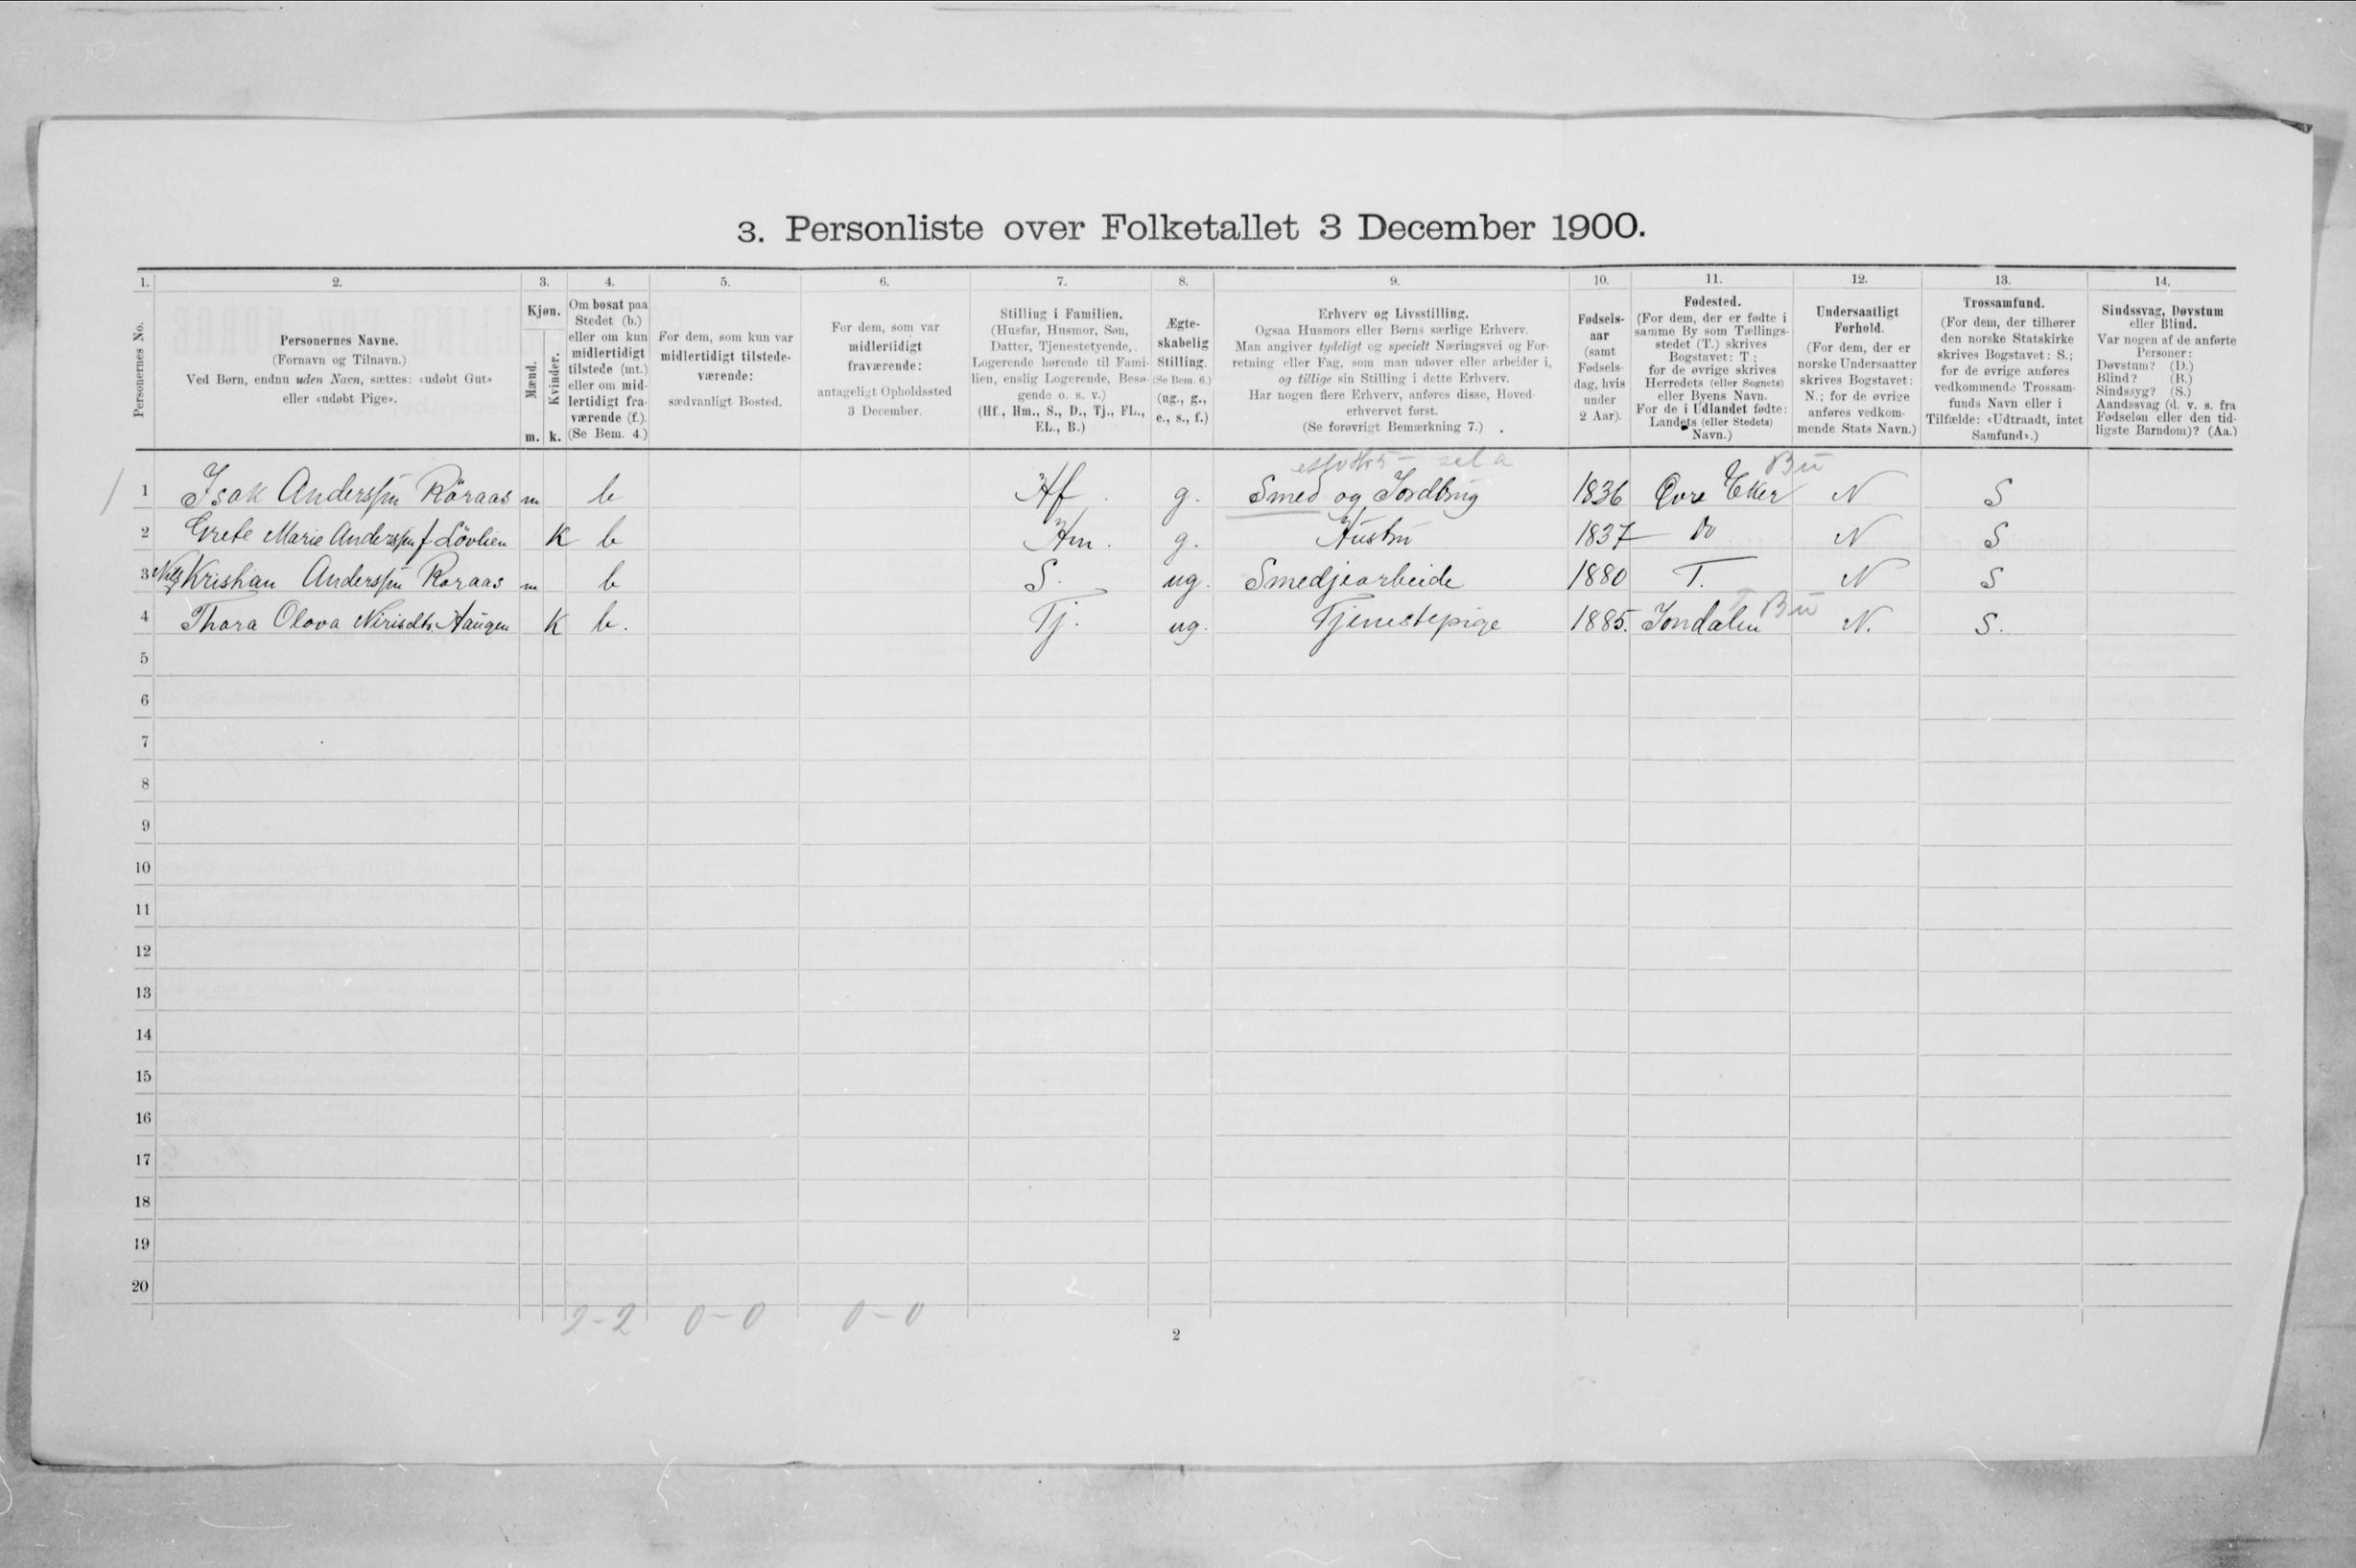 3. Personliste over Folketallet 3 December 1900.
1. 2. 3. 4. 5. 6. 7. 8. 9. 10. 11. 12. 13. 14.
Personernes No.
Personernes Navne.
(Fornavn og Tilnavn.)
Ved Børn, endnu uden Navn, sættes: «udøbt Gut»
eller «udøbt Pige».
Kjøn.
Mænd.
Kvinder.
m. k.
Om bosat paa
Stedet (b.)
eller om kun
midlertidigt
tilstede (mt.)
eller om mid-
lertidigt fra-
værende (f.).
(Se Bem. 4.)
For dem, som kun var
midlertidigt tilstede-
værende:
sædvanligt Bosted.
For dem, som var
midlertidigt
fraværende:
antageligt Opholdssted
3 December.
Stilling i Familien.
(Husfar, Husmor, Søn,
Datter, Tjenestetyende,
Logerende hørende til Fami-
lien, enslig Logerende, Besø-
gende o. s. v.)
(Hf., Hm., S., D., Tj., FL.,
EL., B.)
Ægte-
skabelig
Stilling.
(Se Bem. 6.)
(ug., g.,
e., s., f.)
Erhverv og Livsstilling.
Ogsaa Husmors eller Børns særlige Erhverv.
Man angiver tydeligt og specielt Næringsvei og For-
retning eller Fag, som man udøver eller arbeider i,
og tillige sin Stilling i dette Erhverv.
Har nogen flere Erhverv, anføres disse, Hoved-
erhvervet først.
(Se forøvrigt Bemærkning 7.)
Fødsels-
aar
(samt
Fødsels-
dag, hvis
under
2 Aar).
Fødested.
(For dem, der er fødte i
samme By som Tællings-
stedet (T.) skrives
Bogstavet: T.;
for de øvrige skrives
Herredets (eller Sognets)
eller Byens Navn.
For de i Udlandet fødte:
Landets (eller Stedets)
Navn.)
Undersaatligt
Forhold.
(For dem, der er
norske Undersaatter
skrives Bogstavet:
N.; for de øvrige
anføres vedkom-
mende Stats Navn.)
Trossamfund.
(For dem, der tilhører
den norske Statskirke
skrives Bogstavet: S.;
for de øvrige anføres
vedkommende Trossam-
funds Navn eller i
Tilfælde: «Udtraadt, intet
Samfund».)
Sindssvag, Døvstum
eller Blind.
Var nogen af de anførte
Personer:
Døvstum? (D.)
Blind? (B.)
Sindssyg? (S.)
Aandssvag (d. v. s. fra
Fødselen eller den tid-
ligste Barndom)? (Aa.)
Bu
1 Isak Anderssen Röraas m b Hf. g. Smed og Jordbrug 1836 Øvre Eker N S
2 Grete Marie Anderssen f Lövlien K b Hm. g. Hustru 1837 Do N S
3 Nils Kristian Anderssen Roraas m b S. ug. Smedjearbeide 1880 T. N S
Bu
4 Thora Olava Nirisdtr. Haugen K b. Tj. ug. Tjenestepige 1885. Jondalen N. S.
5
6
7
8
9
10
11
12
13
14
15
16
17
18
19
20
2-2 0-0 0-0
2